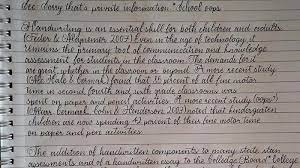 See "Sorry that's private information" School oops
Handwriting is an essential skill for both children and adults
(Feder & Majnemer 2007) Even in the age of technology, it
remains the primary tool of communication and knowledge
assessment for students in the classroom. The demands for it
are great, whether in the classroom or beyond. A more recent study
(Mc Hale & Cermak) found that 85 percent of all fine motor
time in second fourth and sixth grade classrooms was
spent on paper and pencil activities. A more recent study
Cermak, Colin & Henderson 2003) noted that kindergarten
children are now spending percent of their fine motor time
on paper and activities.
The addition of handwritten components to many state stan
assessments and of a handwritten essay to the College Board College